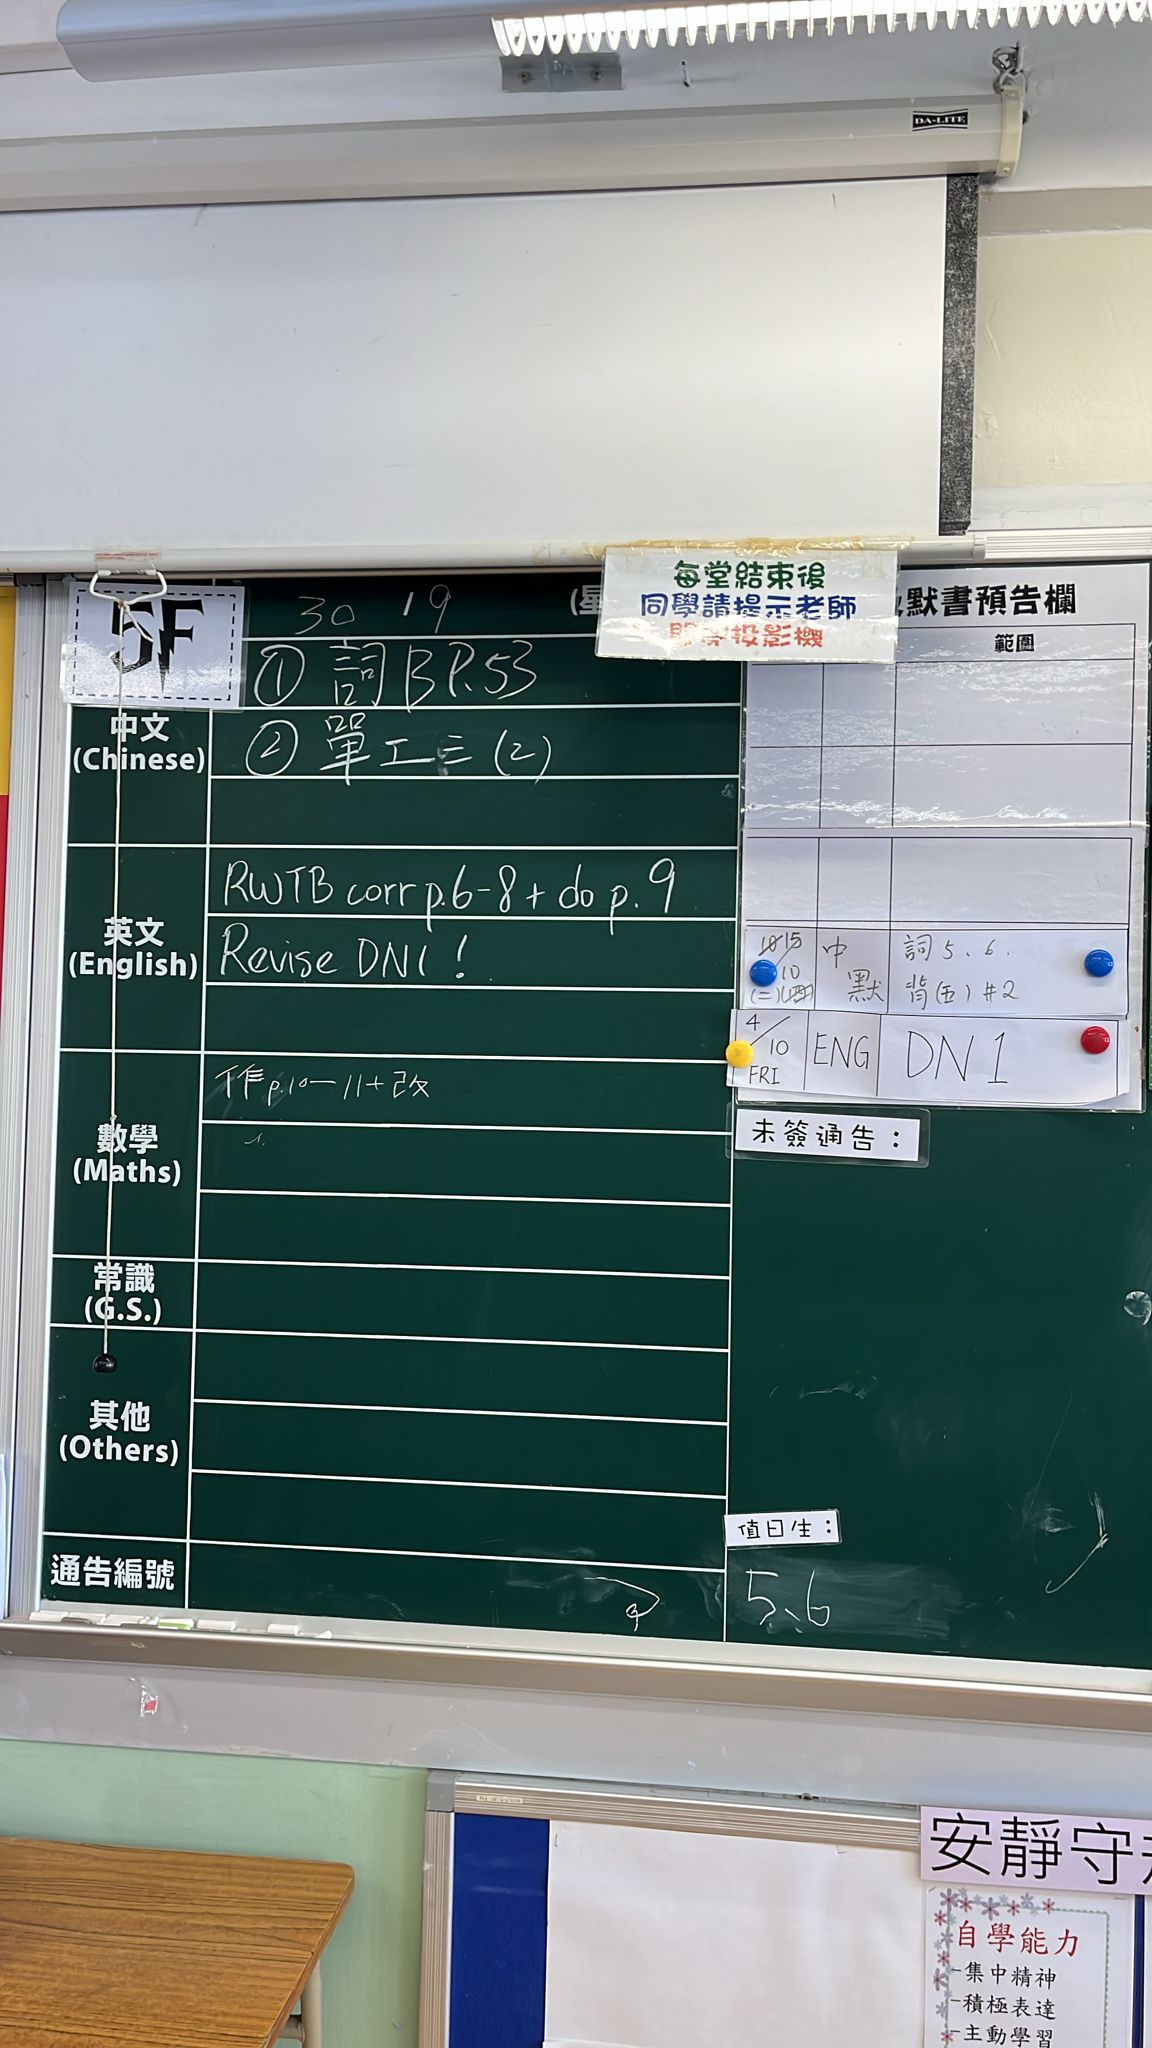 DA-LITE
每堂結束後
同學請提示老師
關掉投影機
5F
30 19
(星
默書預告欄
範圍
① 詞B P.53
中文
(Chinese)
② 單工三(2)
英文
(English)
RWTB corr p.6-8 + do p.9
Revise DN1!
15
10
(二)
中
默
詞5、6.
背(五)#2
4/10
FRI
ENG
DN 1
數學
(Maths)
作p.10-11+改
未簽通告：
常識
(G.S.)
其他
(Others)
值日生：
5、6
通告編號
安靜守
自學能力
-集中精神
-積極表達
-主動學習